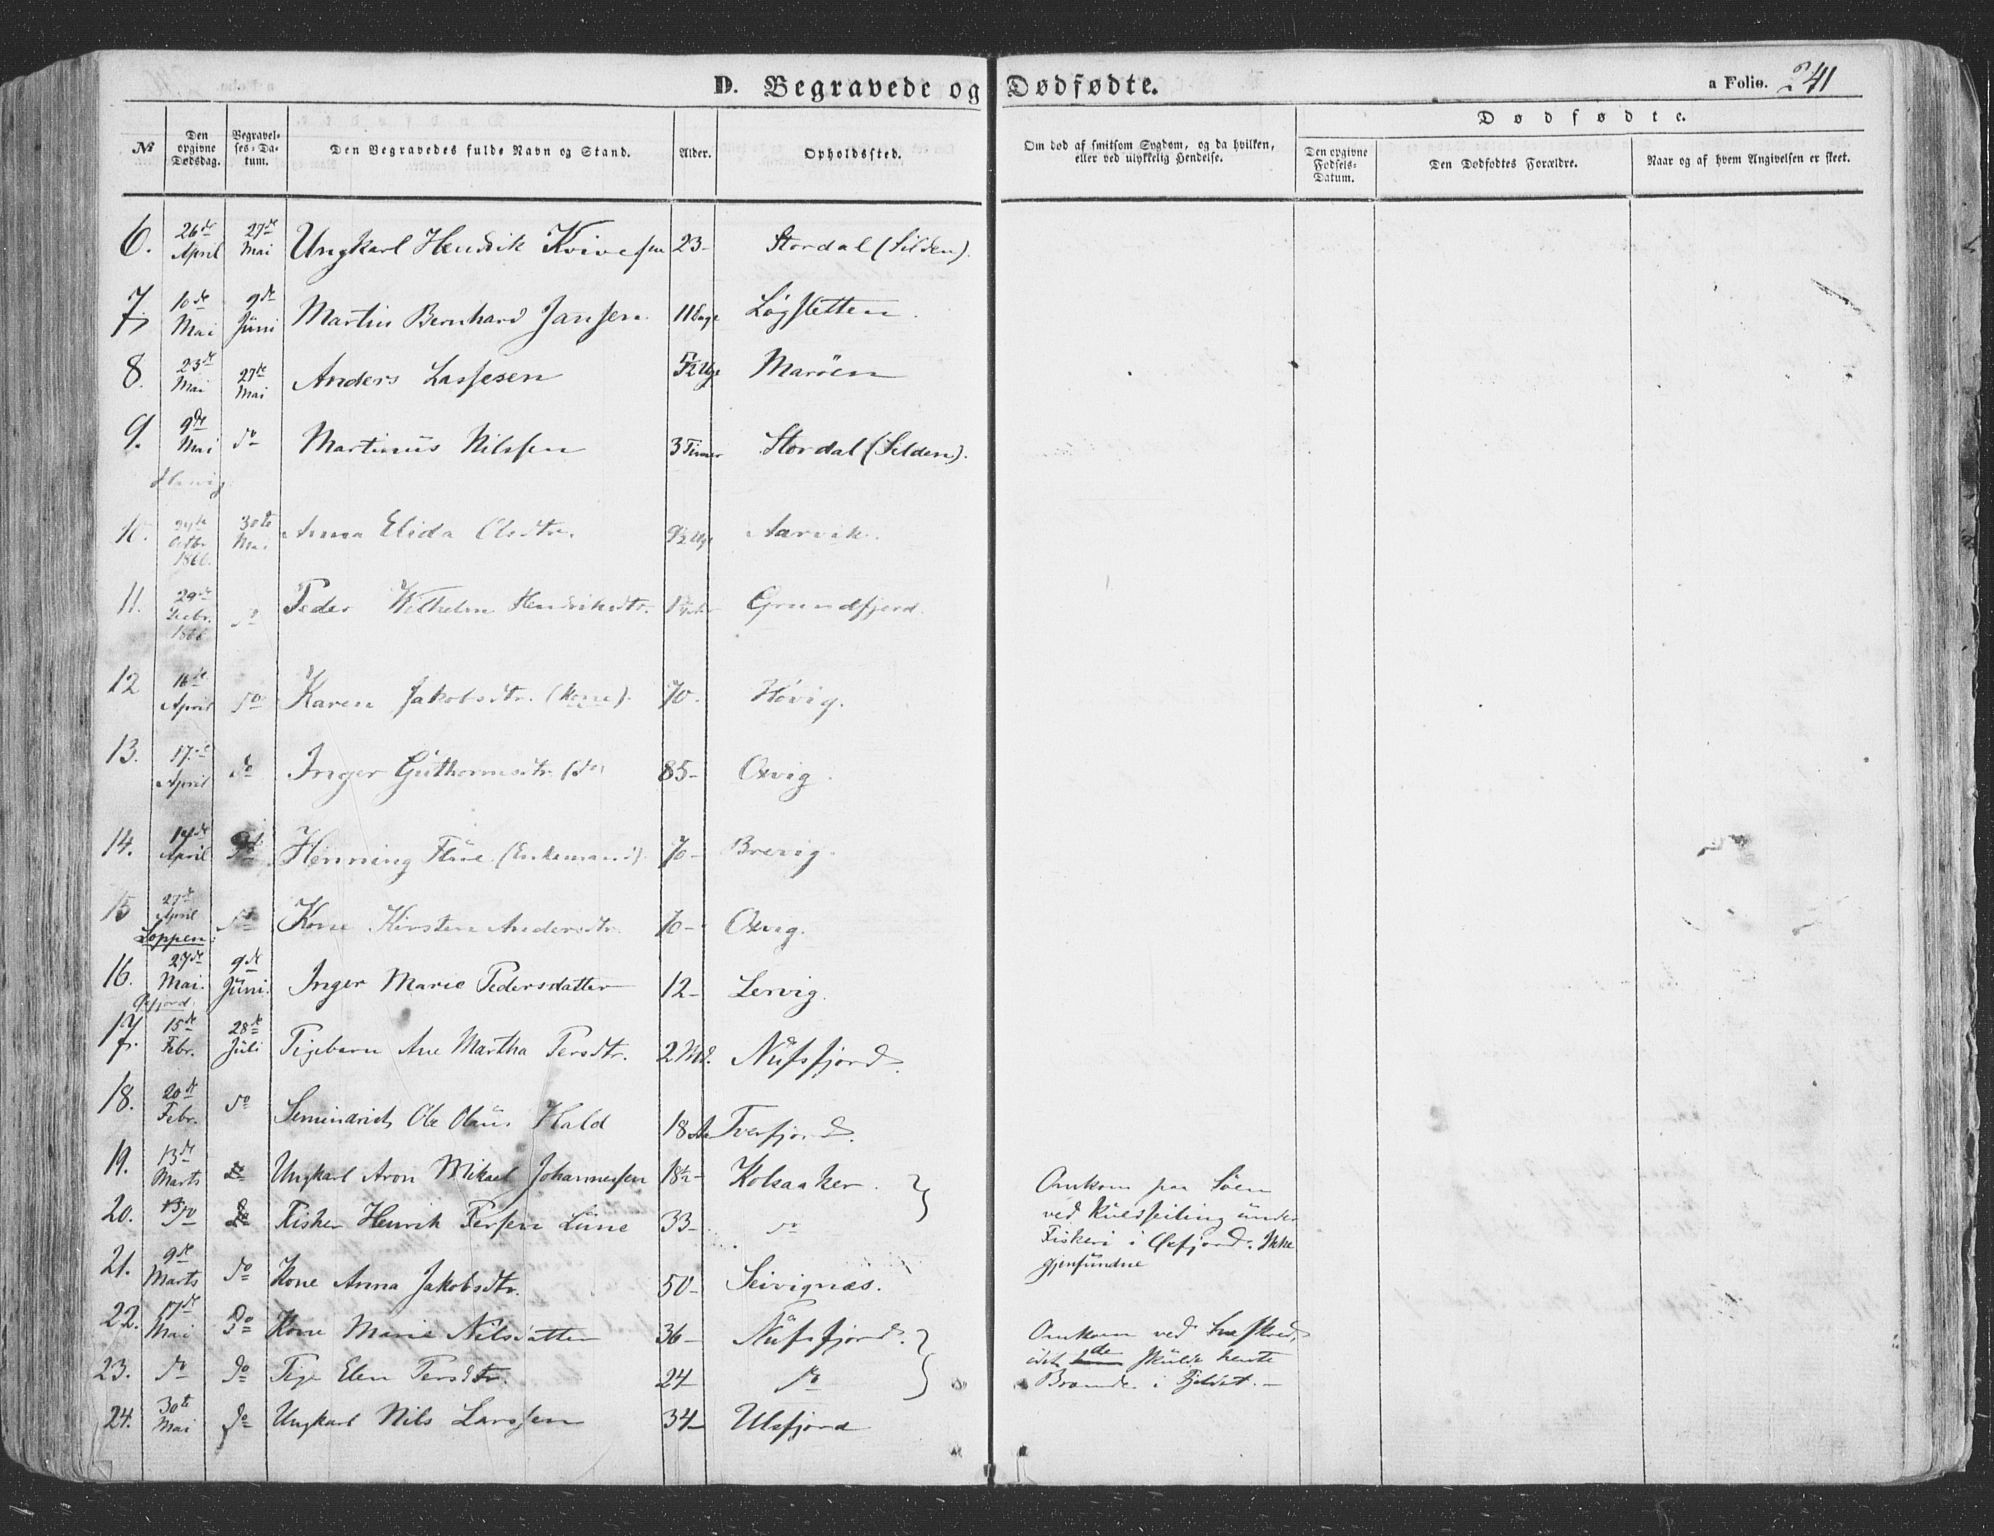 D. Begravede og Dødfødte.
a Folio. 241
№ Den opgivne Dødsdag. Begravelses-Datum. Den Begravedes fulde Navn og Stand. Alder. Opholdssted. Om død af smitsom Sygdom, og da hvilken, eller ved ulykkelig Hendelse. Dødfødte. Den opgivne Fødsels-Datum. Den Dødfødtes Forældre. Naar og af hvem Angivelsen er skeet.
6. 26de April 27de Mai Ungkarl Hendrik Kvivesen 23- Stordal (Silden).
7. 10de Mai 9de Juni Martin Bernhard Jansen 11 Dage Løgsletten.
8. 23de Mai 27de Mai Anders Lassesen 5½ Uge Marøen
9. 9de Mai do Martinus Nilssen 3 Timer Stordal (Silden).
10. Octbr. 1866. 30te Mai Anna Elida Olsdtr. 9½ Uge Aarvik.
11. 29de 1866 do Peder Wilhelm Grundfjord.
12 16de April do Karen Jakobsdtr. (Kone). 70. Høvig.
13. 17de April do Inger Guthormsdtr. (do) 85- Oxvig.
14. 14de April do Henning (Enkemand) 70- Brevig.
15 27de April do Kone Kirsten Andersdtr. 70- Oxvig.
Loppen:
16. 27de Mai. 9de Juni. Inger Marie Pedersdatter 12- Lervig.
Øxfjord.
17. 15de Febr. 28de Juli Pigebarn Ane Martha Persdtr. 2 Md. Nufsfjord.
18. 20de Febr. do Seminarist Ole Olaus Hald 18 Tverfjord.
19. 13de Marts do Ungkarl Aron Mikael Johannessen 18½- Kolsaaker. } Omkom paa Søen
20. do do Fisker Henrik Persen Lüne 33- do ved Kuldseiling under
Fiskeri i Øxfjord. Ikke
gjenfundne
21. 9de Marts do Kone Anna Jakobsdtr. 50- Seivignæs.
22. 17de Mai do Kone Marie Nilsdatter 36- Nufsfjord. } Omkom ved Sneskred,
23. do do Pige Elen Persdtr. 24- do idet de skulde hente
Brænde i Fjeldet. -
24. 30te Mai do Ungkarl Nils Larssen 34- Ulsfjord